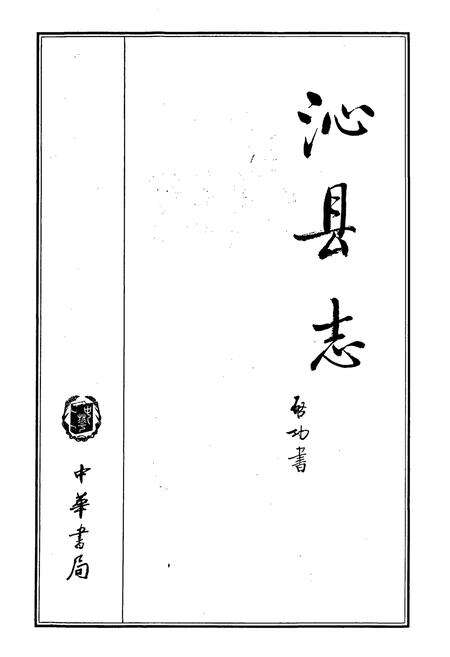 沁县志
启功書
中華書局